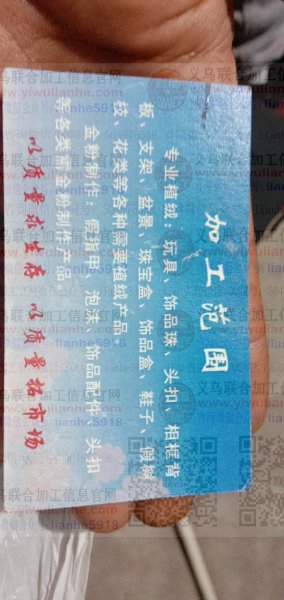 加工范围
专业植绒：玩具、饰品珠、头扣、相框背
板、支架、盆景、珠宝盒、饰品盒、鞋子、假树
枝、花类等各种需要植绒产品。
金粉制作：假指甲、泡沫、饰品配件、头扣
等各类需金粉制作产品。
以质量求生存 以质量拓市场
义乌联合加工信息官网
www.yiwulianhe.com
lianhe5918